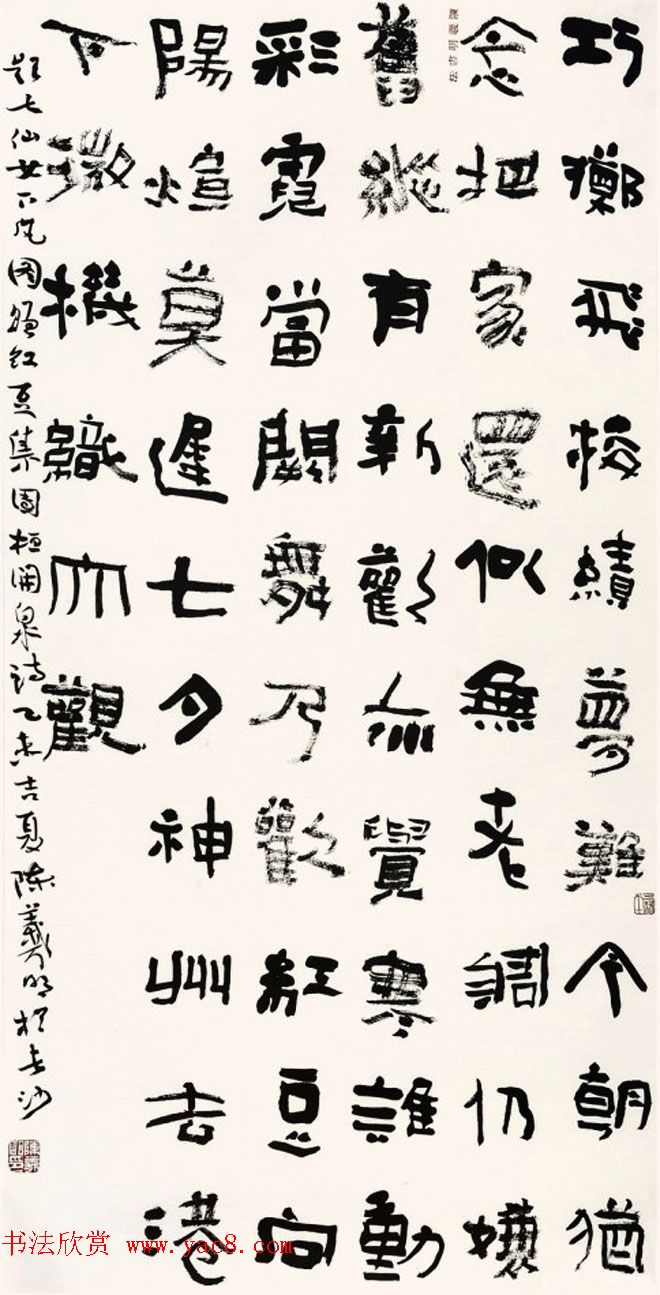 巧擲飛梭績夢難今朝猶
念把家還似無老調仍嫌
舊縱有新歡亦覺寒誰動
彩霓當闕舞乃歡紅豆向
陽煊莫遲七夕神州去港
下微機織大觀
题七仙女下凡图赠红豆集团桓闻泉诗乙未吉夏陈羲明於长沙
书法欣赏 www.yac8.com